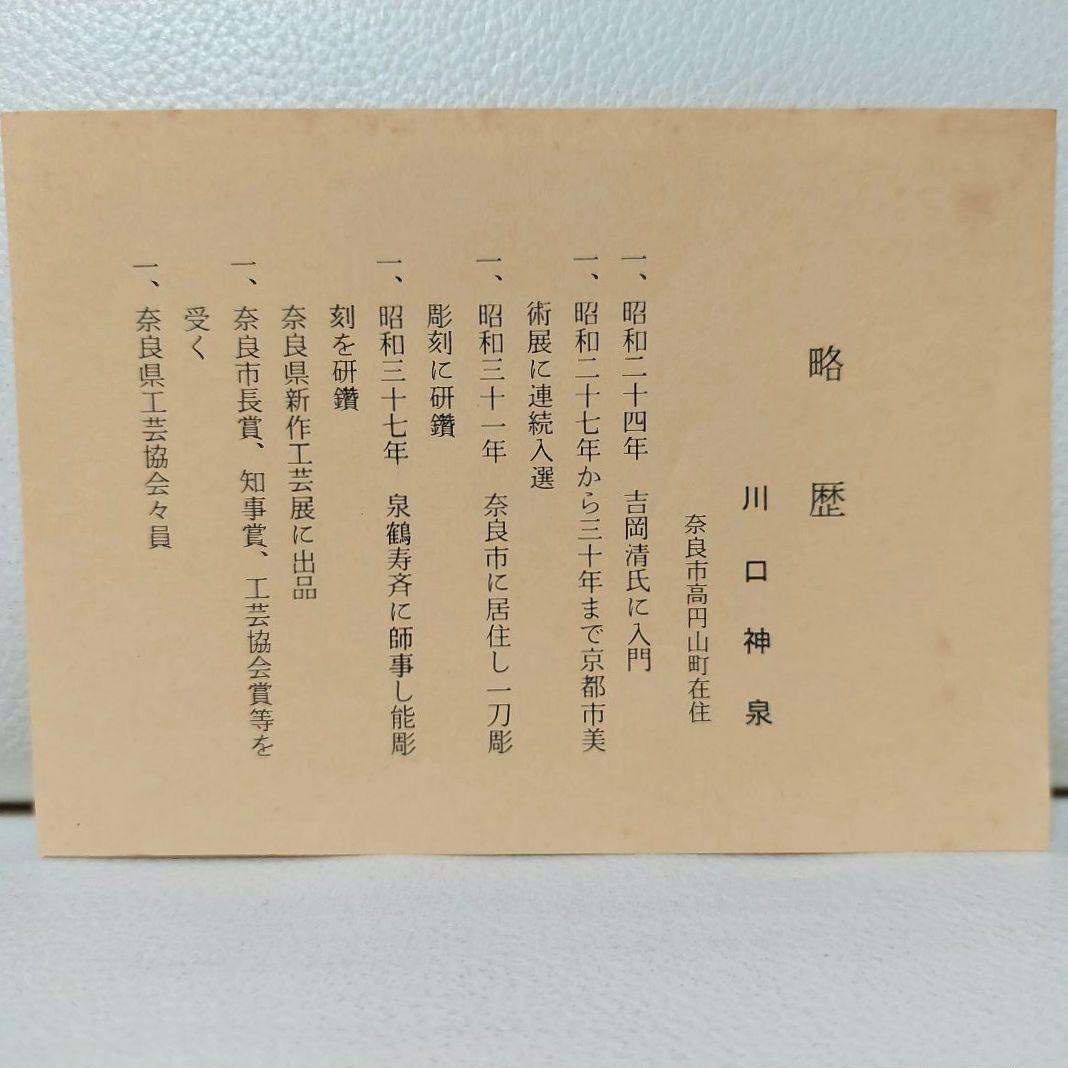 略歴
川口神泉
奈良市高円山町在住
一、昭和二十四年　吉岡清氏に入門
一、昭和二十七年から三十年まで京都市美
術展に連続入選
一、昭和三十一年　奈良市に居住し一刀彫
彫刻に研鑽
一、昭和三十七年　泉鶴寿斉に師事し能彫
刻を研鑽
奈良県新作工芸展に出品
一、奈良市長賞、知事賞、工芸協会賞等を
受く
一、奈良県工芸協会々員